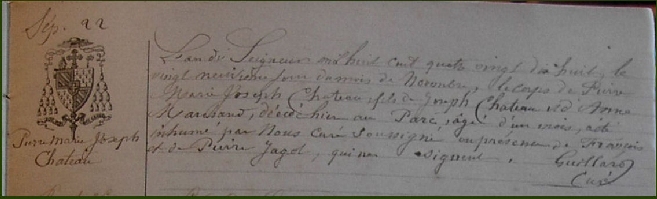 Sép. 22
Pierre Marie Joseph
Château
L'an du Seigneur mil huit cent quatre vingt dix huit, le
vingt neuvième jour du mois de Novembre, le corps de Pierre
Marie Joseph Château fils de Joseph Château et d'Anne
décédé hier au Parc, âgé d'un mois, a été
inhumé par Nous Curé soussigné en présence de François
et de Pierre Jagot, qui ne signent.
Curé